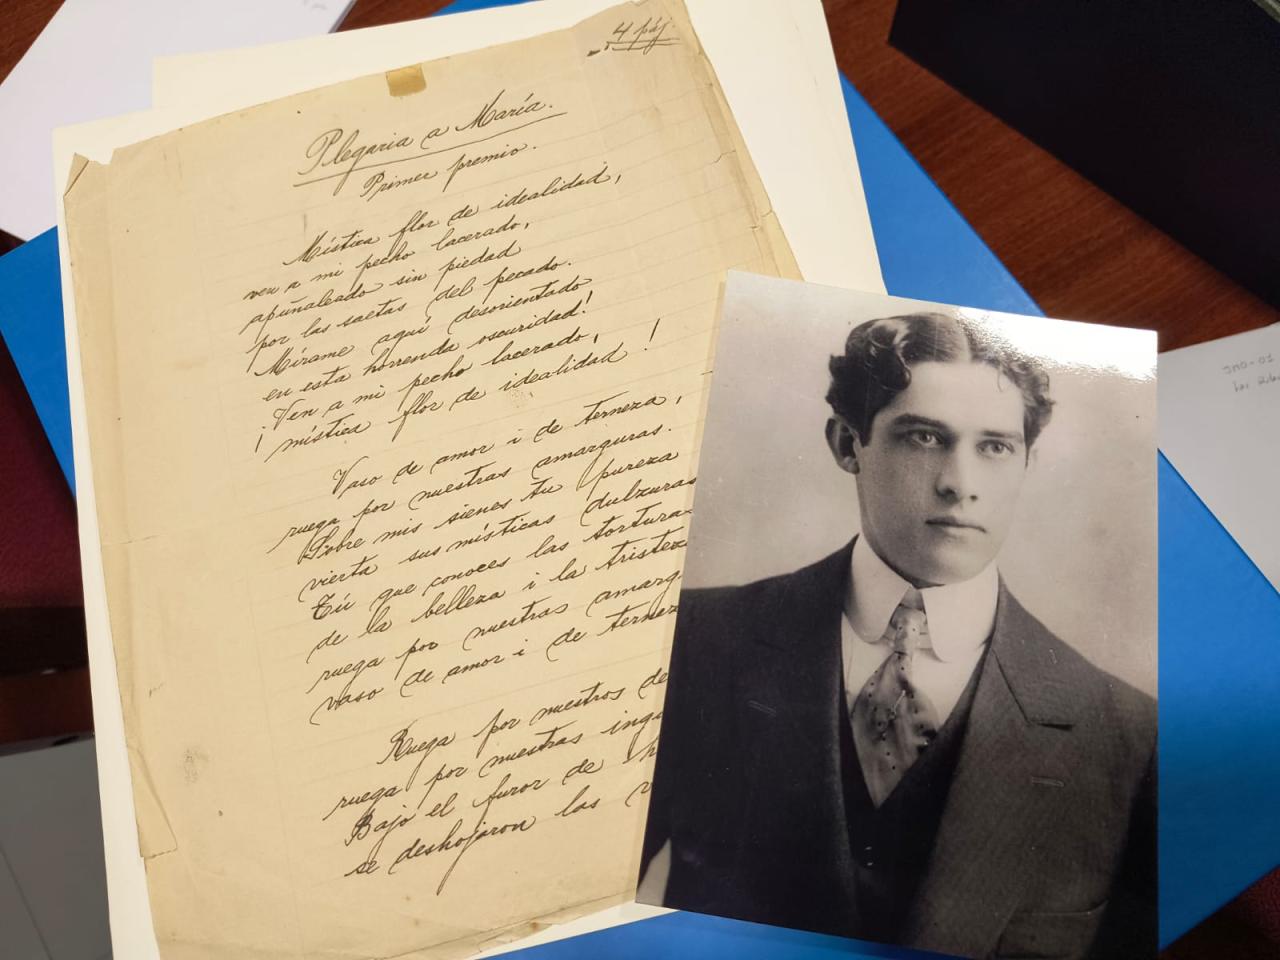 4 páj.
Plegaria a María.
Primer premio.
Mística flor de idealidad,
ven a mi pecho lacerado,
apuñaleado sin piedad
por las saetas del pecado.
Mírame aquí desorientado
en esta horrenda oscuridad!
¡Ven a mi pecho lacerado,
mística flor de idealidad!
Vaso de amor i de terneza,
ruega por nuestras amarguras.
Sobre mis sienes tu pureza
vierta sus místicas dulzuras
Tú que conoces las tortura
de la belleza i la tristez
ruega por nuestras amarg
vaso de amor i de ternez
Ruega por nuestros de
ruega por nuestras ing
Bajo el furor de
se deshojaron las
JMO-01